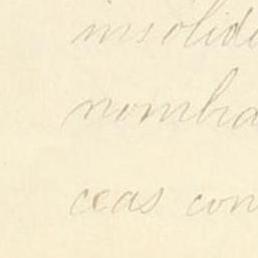 insolid
nombra
ceas con